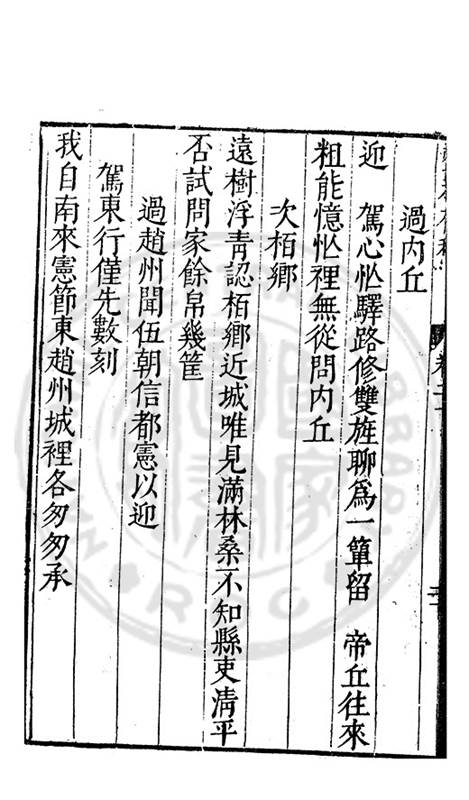 過內丘
迎　駕心忙驛路修雙旌聊爲一簞留　帝丘往來
粗能憶忙裡無從問內丘
次栢鄉
遠樹浮青認栢鄉近城唯見滿林桑不知縣吏清平
否試問家餘帛幾筐
過趙州聞伍朝信都憲以迎
駕東行僅先數刻
我自南來憲節東趙州城裡各匆匆承